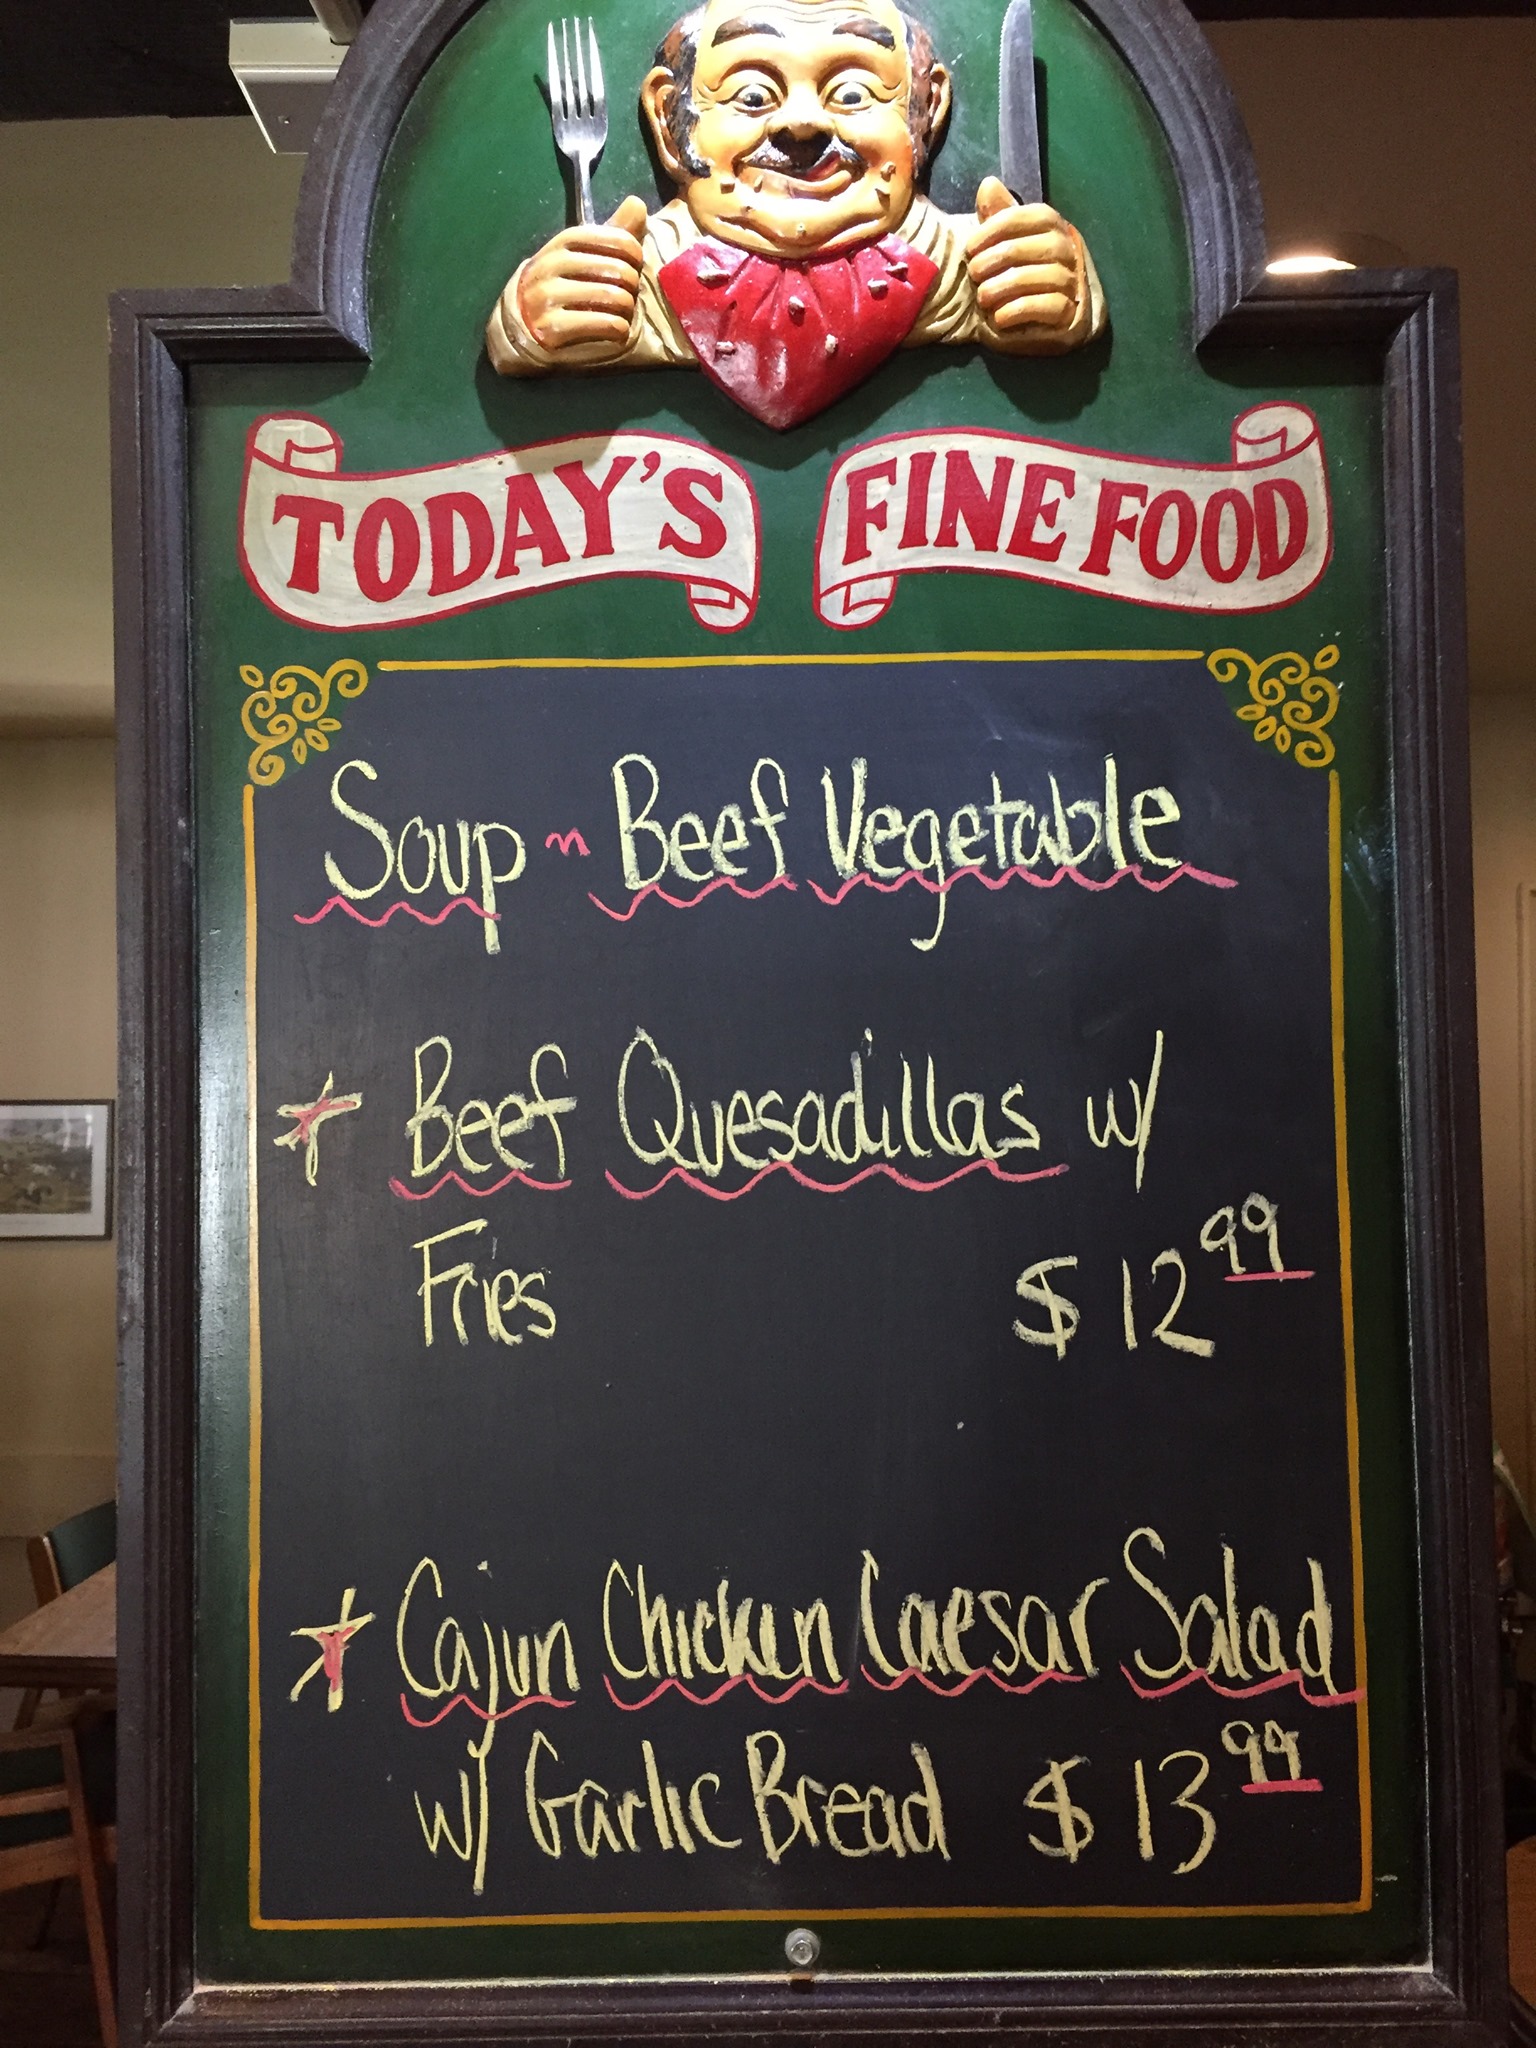 TODAY'S FINE FOOD
Soup ~ Beef Vegetable
* Beef Quesadillas w/
Fries $12.99
* Cajun Chicken Caesar Salad
w/ Garlic Bread $13.99